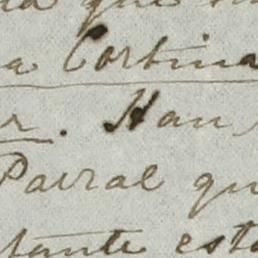 que
a Cortina
r. Han
Parral qu
tante esta